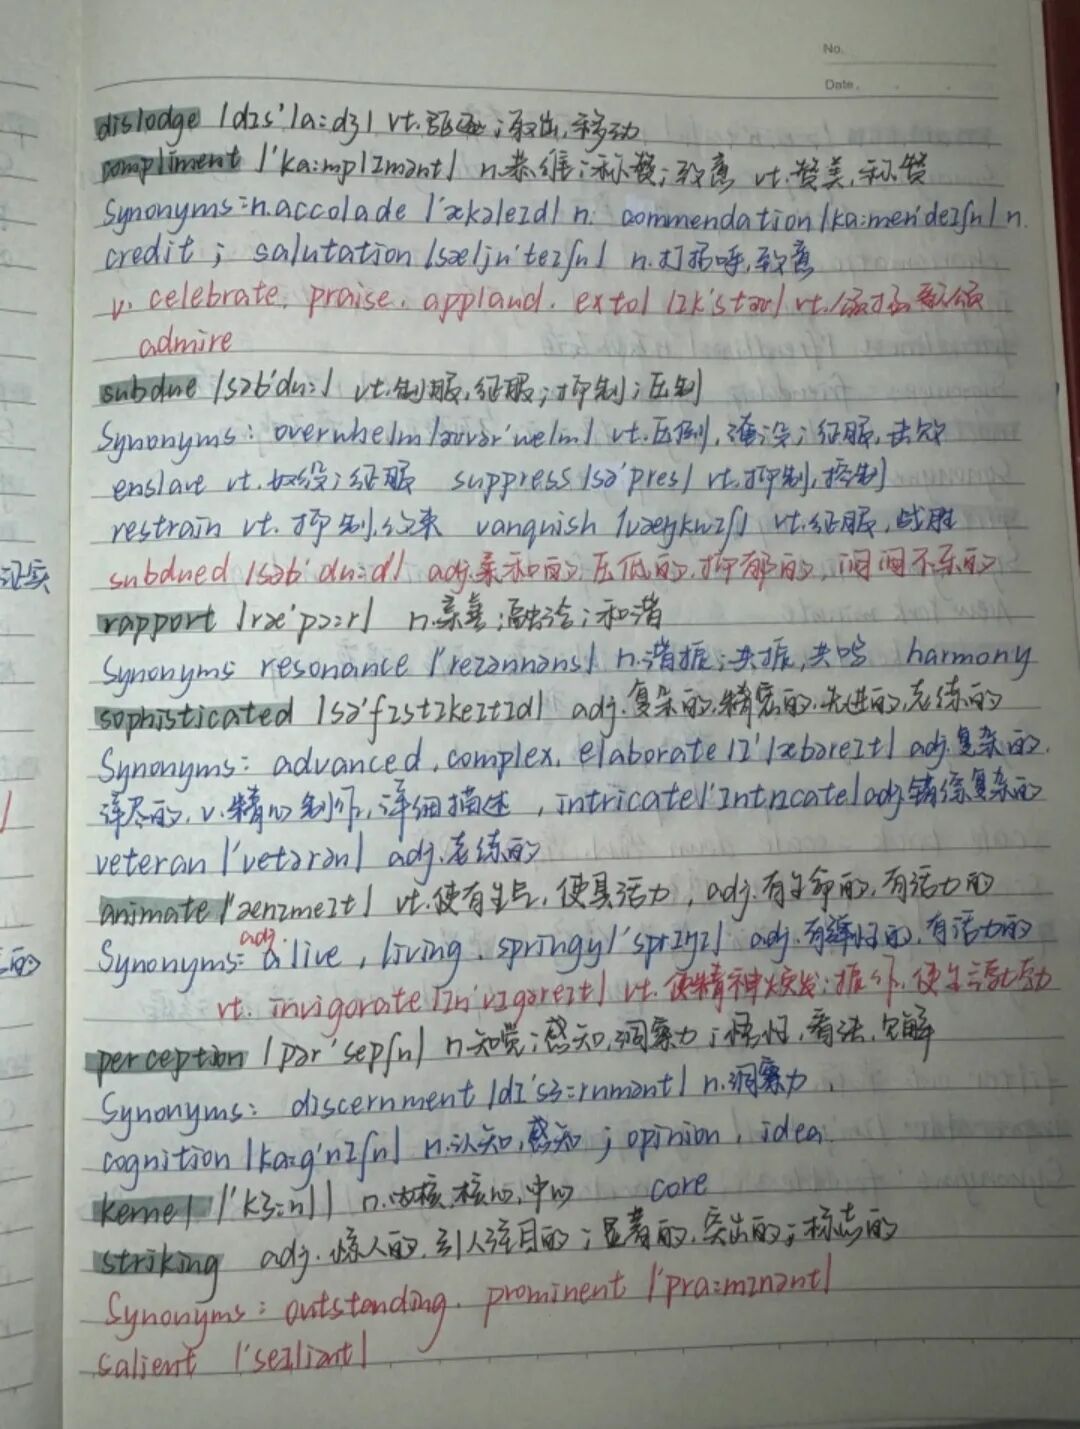 No.
Date.
dislodge /dɪs'la:dʒ/ vt.驱逐;取出,移动
compliment /'ka:mplɪmənt/ n.恭维;称赞;致意 vt.赞美,称赞
Synonyms:n.accolade /'ækəleɪd/ n. commendation /ka:men'deɪʃn/ n.
credit; salutation /sælju'teɪʃn/ n.打招呼,致意
v. celebrate, praise, applaud, extol /ɪk'stəʊl/ vt.颂扬,歌颂
admire
subdue /səb'du:/ vt.制服,征服;抑制;压制
Synonyms: overwhelm /əʊvər'welm/ vt.压倒,淹没;征服,击败
enslave vt.奴役;征服 suppress /sə'pres/ vt.抑制,控制
restrain vt.抑制,约束 vanquish /'væŋkwɪʃ/ vt.征服,战胜
证实
subdued /səb'du:d/ adj.柔和的,压低的,抑郁的,闷闷不乐的
rapport /ræ'pɔ:r/ n.亲善;融洽;和谐
Synonyms resonance /'rezənəns/ n.谐振;共振,共鸣 harmony
sophisticated /sə'fɪstɪkeɪtɪd/ adj.复杂的,精密的,先进的,老练的
Synonyms: advanced, complex, elaborate /ɪ'læbəreɪt/ adj.复杂的,
详尽的, v.精心制作,详细描述, intricate /'ɪntrɪcate/ adj.错综复杂的
veteran /'vetərən/ adj.老练的
animate /'ænɪmeɪt/ vt.使有生气,使具活力, adj.有生命的,有活力的
adj.
Synonyms: alive, living, springy /'sprɪŋɪ/ adj.有弹性的,有活力的
vt. invigorate /ɪn'vɪgəreɪt/ vt.使精神焕发;振作,使生动
perception /pər'sepʃn/ n.知觉;感知,洞察力;悟性,看法,见解
Synonyms: discernment /dɪ'sɜ:rnmənt/ n.洞察力,
cognition /ka:g'nɪʃn/ n.认知,感知; opinion, idea
kernel /'kɜ:nl/ n.内核,核心,中心 core
striking adj.惊人的,引人注目的;显著的,突出的;标志的
Synonyms: outstanding, prominent /'pra:mɪnənt/
salient /'seɪliənt/